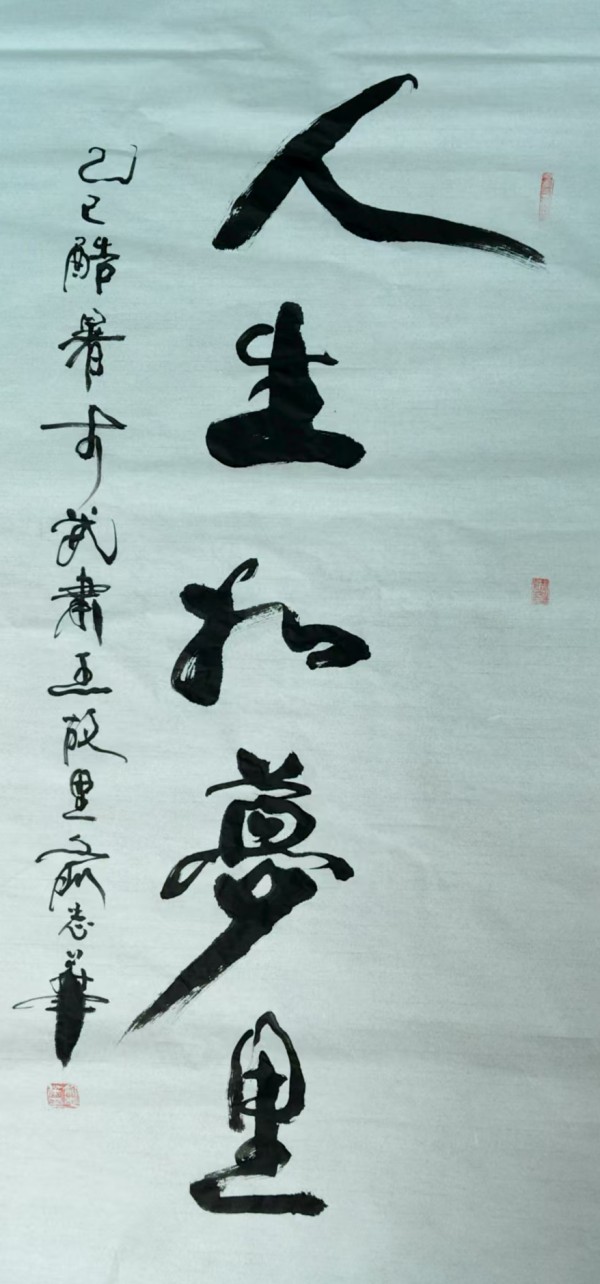 人生如夢里
乙巳酷暑于武肅王故里齊志華